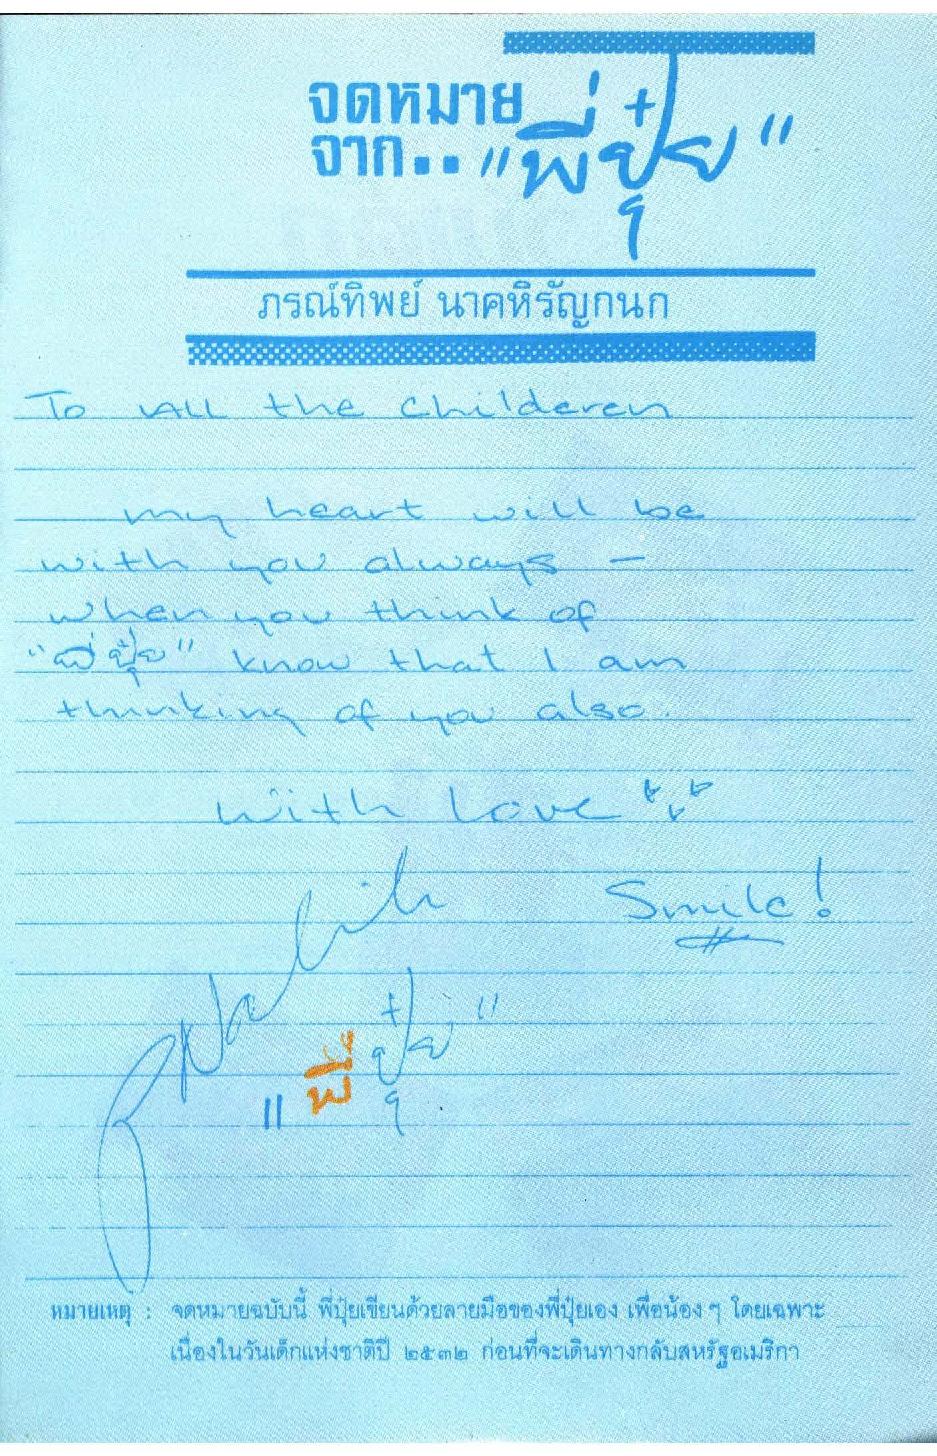 จดหมาย
จาก.. "พี่ปุ๋ย"
ภรณ์ทิพย์ นาคหิรัญกนก
To All the Childeren
my heart will be
with you always –
when you think of
"พี่ปุ๋ย" know that I am
thinking of you also.
With Love
Smile!
"พี่ปุ๋ย"
หมายเหตุ : จดหมายฉบับนี้ พี่ปุ๋ยเขียนด้วยลายมือของพี่ปุ๋ยเอง เพื่อน้อง ๆ โดยเฉพาะ
เนื่องในวันเด็กแห่งชาติปี ๒๕๓๒ ก่อนที่จะเดินทางกลับสหรัฐอเมริกา